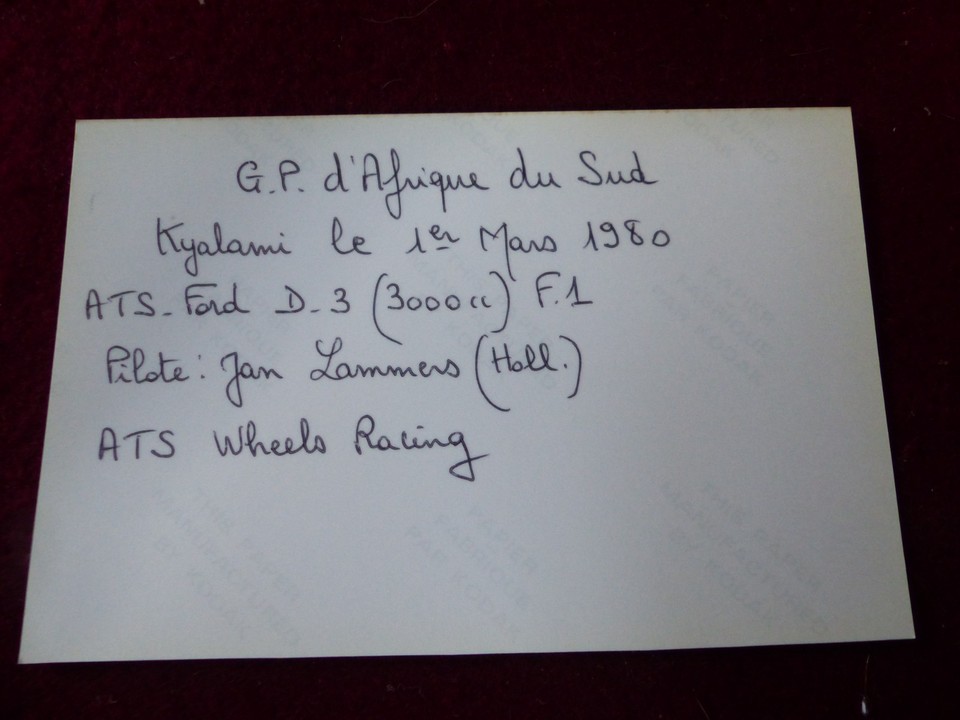 G.P. d'Afrique du Sud
Kyalami le 1er Mars 1980
ATS-Ford D-3 (3000cc) F.1
Pilote: Jan Lammers (Holl.)
ATS Wheels Racing
THIS PAPER
MANUFACTURED
BY KODAK
PAPIER
FABRIQUE
PAR KODAK
THIS PAPER
MANUFACTURED
BY KODAK